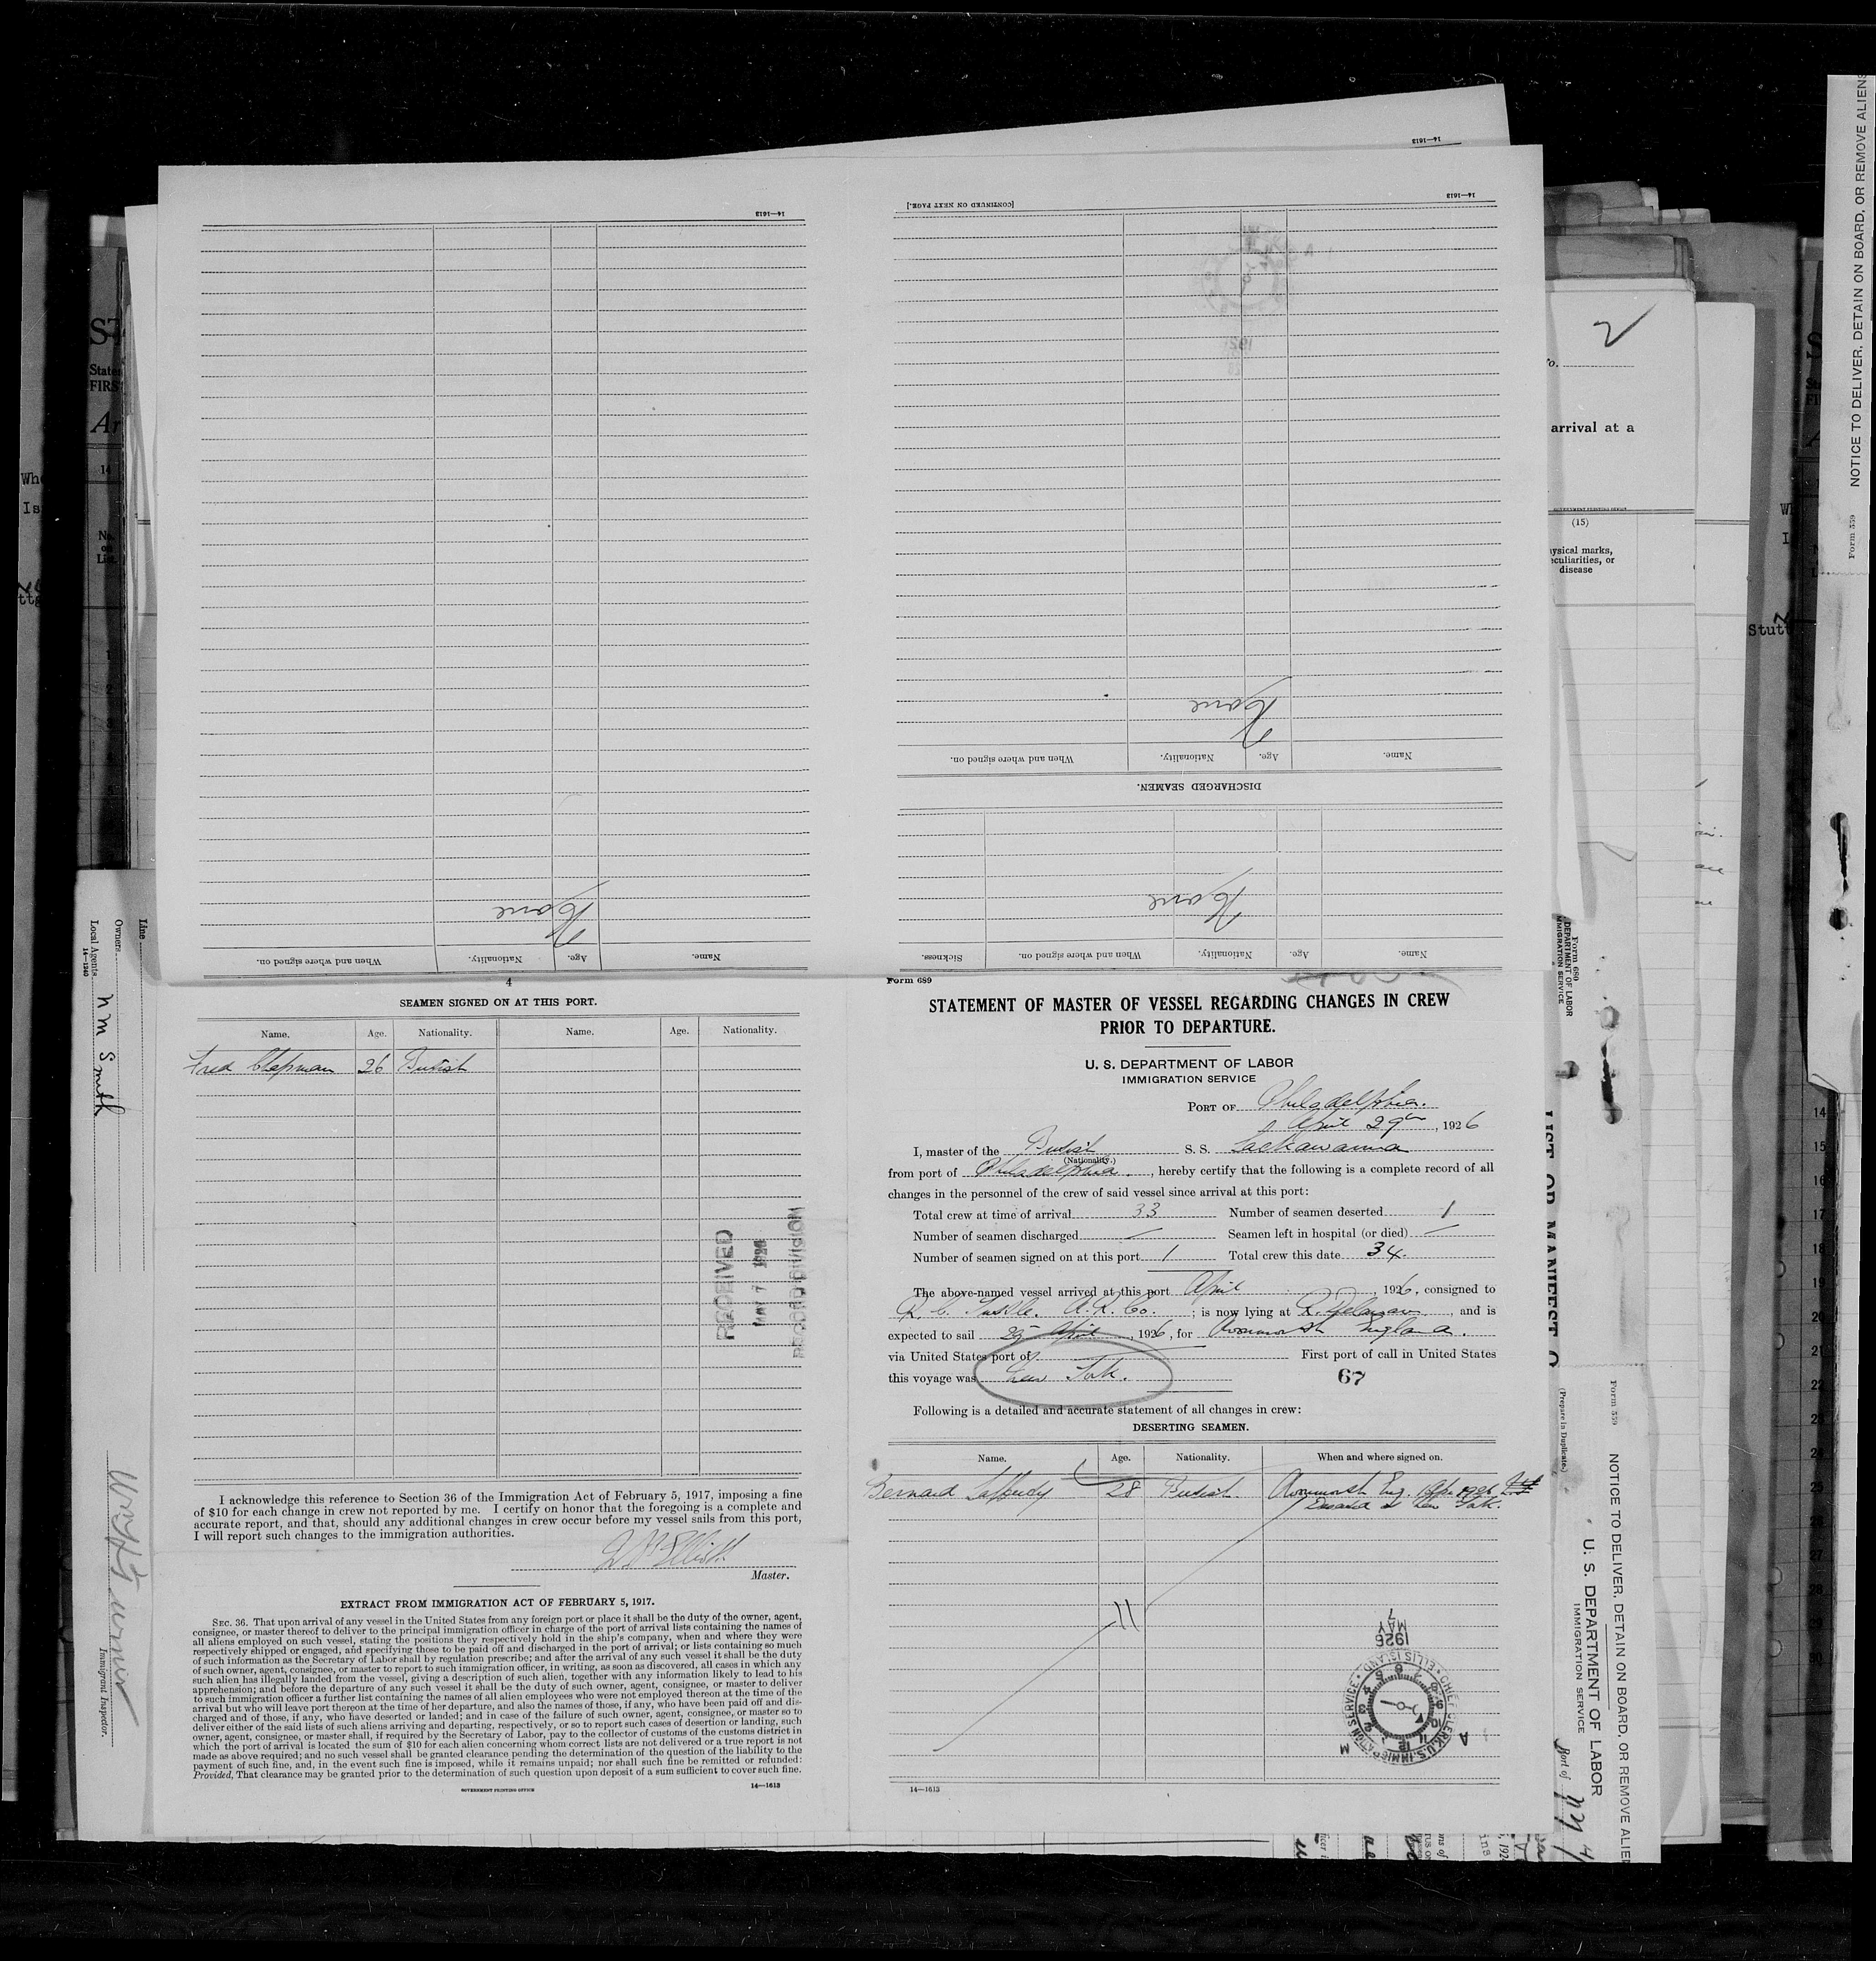 14—1613
Form 689
STATEMENT OF MASTER OF VESSEL REGARDING CHANGES IN CREW
PRIOR TO DEPARTURE.
U. S. DEPARTMENT OF LABOR
IMMIGRATION SERVICE
PORT OF Philadelphia.
April 29th, 1926
I, master of the British S. S. Lackawanna
(Nationality.)
from port of Philadelphia, hereby certify that the following is a complete record of all
changes in the personnel of the crew of said vessel since arrival at this port:
Total crew at time of arrival 33 Number of seamen deserted 1
Number of seamen discharged — Seamen left in hospital (or died) —
Number of seamen signed on at this port 1 Total crew this date 34.
The above-named vessel arrived at this port April, 1926, consigned to
Co. ; is now lying at, and is
expected to sail April, 1926, for Avonmouth England.
via United States port of First port of call in United States
this voyage was New York. 67
Following is a detailed and accurate statement of all changes in crew:
DESERTING SEAMEN.
Name. Age. Nationality. When and where signed on.
Bernard 28 British Avonmouth Eng. 1926
Deserted at New York.
11
MAY 7 1926
CHIEF CLERK, U.S. IMMIGRATION SERVICE • ELLIS ISLAND •
A M
14—1613
4
SEAMEN SIGNED ON AT THIS PORT.
Name. Age. Nationality. Name. Age. Nationality.
Fred Chapman 26 British
RECEIVED
MAY 7 1926
RECORD DIVISION
I acknowledge this reference to Section 36 of the Immigration Act of February 5, 1917, imposing a fine
of $10 for each change in crew not reported by me. I certify on honor that the foregoing is a complete and
accurate report, and that, should any additional changes in crew occur before my vessel sails from this port,
I will report such changes to the immigration authorities.
Elliott
Master.
EXTRACT FROM IMMIGRATION ACT OF FEBRUARY 5, 1917.
SEC. 36. That upon arrival of any vessel in the United States from any foreign port or place it shall be the duty of the owner, agent,
consignee, or master thereof to deliver to the principal immigration officer in charge of the port of arrival lists containing the names of
all aliens employed on such vessel, stating the positions they respectively hold in the ship's company, when and where they were
respectively shipped or engaged, and specifying those to be paid off and discharged in the port of arrival; or lists containing so much
of such information as the Secretary of Labor shall by regulation prescribe; and after the arrival of any such vessel it shall be the duty
of such owner, agent, consignee, or master to report to such immigration officer, in writing, as soon as discovered, all cases in which any
such alien has illegally landed from the vessel, giving a description of such alien, together with any information likely to lead to his
apprehension; and before the departure of any such vessel it shall be the duty of such owner, agent, consignee, or master to deliver
to such immigration officer a further list containing the names of all alien employees who were not employed thereon at the time of the
arrival but who will leave port thereon at the time of her departure, and also the names of those, if any, who have been paid off and dis-
charged and of those, if any, who have deserted or landed; and in case of the failure of such owner, agent, consignee, or master so to
deliver either of the said lists of such aliens arriving and departing, respectively, or so to report such cases of desertion or landing, such
owner, agent, consignee, or master shall, if required by the Secretary of Labor, pay to the collector of customs of the customs district in
which the port of arrival is located the sum of $10 for each alien concerning whom correct lists are not delivered or a true report is not
made as above required; and no such vessel shall be granted clearance pending the determination of the question of the liability to the
payment of such fine, and, in the event such fine is imposed, while it remains unpaid; nor shall such fine be remitted or refunded:
Provided, That clearance may be granted prior to the determination of such question upon deposit of a sum sufficient to cover such fine.
GOVERNMENT PRINTING OFFICE 14—1613
Name. Age. Nationality. When and where signed on. Sickness.
None
DISCHARGED SEAMEN.
Name. Age. Nationality. When and where signed on.
None
14—1613 [CONTINUED ON NEXT PAGE.]
Name. Age. Nationality. When and where signed on.
None
14—1613
Line
Owners
Local Agents N M Smith
14—1240
Immigrant Inspector.
2
arrival at a
(15)
physical marks,
peculiarities, or
disease
Form 680
DEPARTMENT OF LABOR
IMMIGRATION SERVICE
(Prepare in Duplicate.)
Form 559
NOTICE TO DELIVER, DETAIN ON BOARD, OR REMOVE ALIENS
U. S. DEPARTMENT OF LABOR
IMMIGRATION SERVICE
Port of N Y
Form 559
NOTICE TO DELIVER, DETAIN ON BOARD, OR REMOVE ALIENS